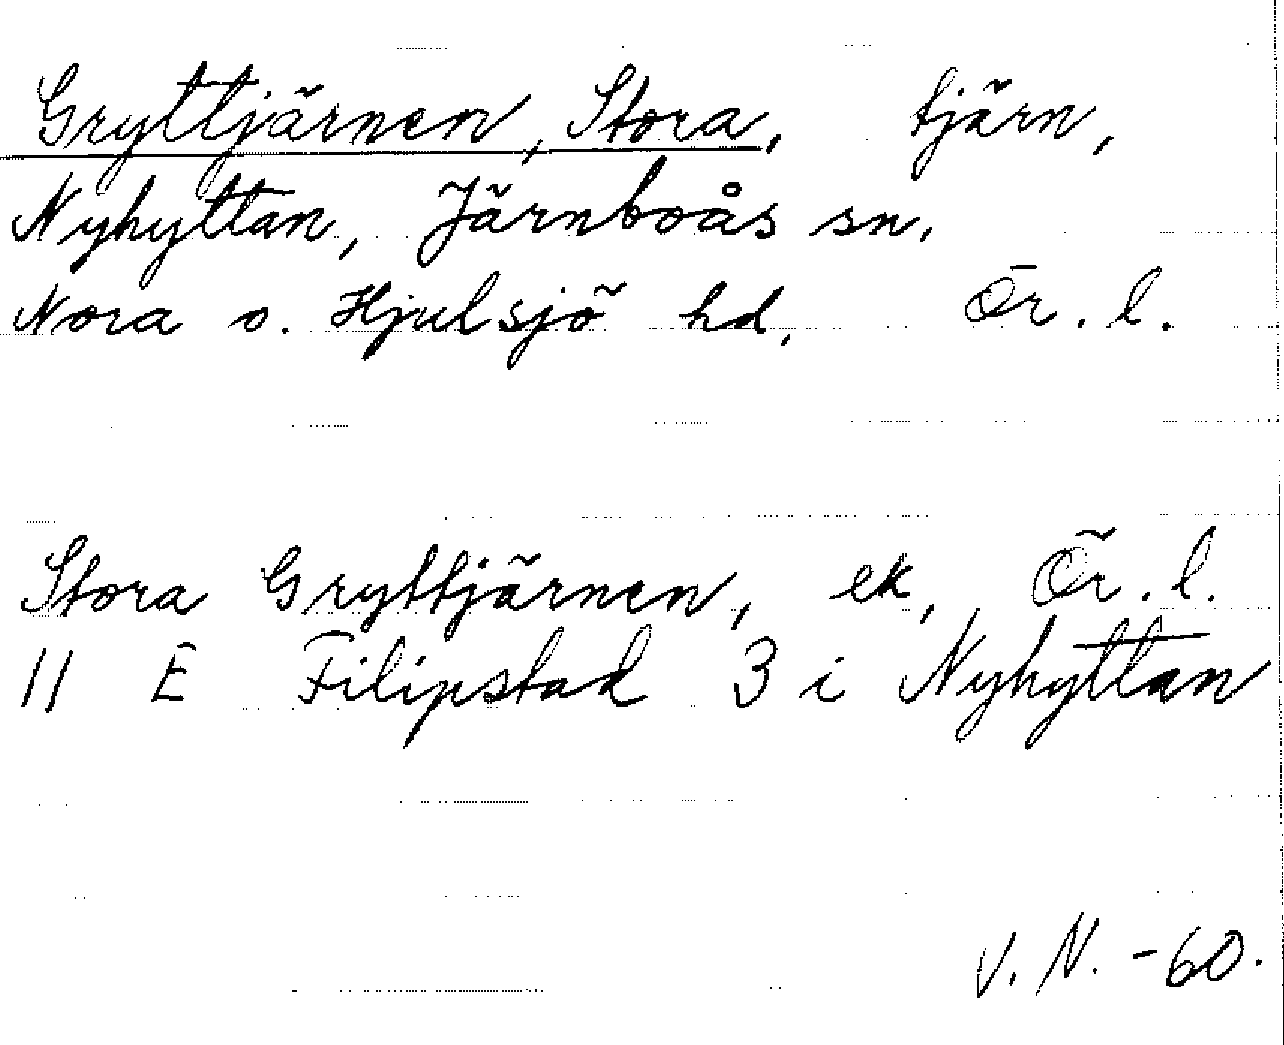 Gryttjärnen, Stora, tjärn,
Nyhyttan, Järnboås sn,
Nora o. Hjulsjö hd, Ör. l.
Stora Gryttjärnen, ek, Ör. l.
11 E Filipstad 3 i Nyhyttan
V. N. -60.